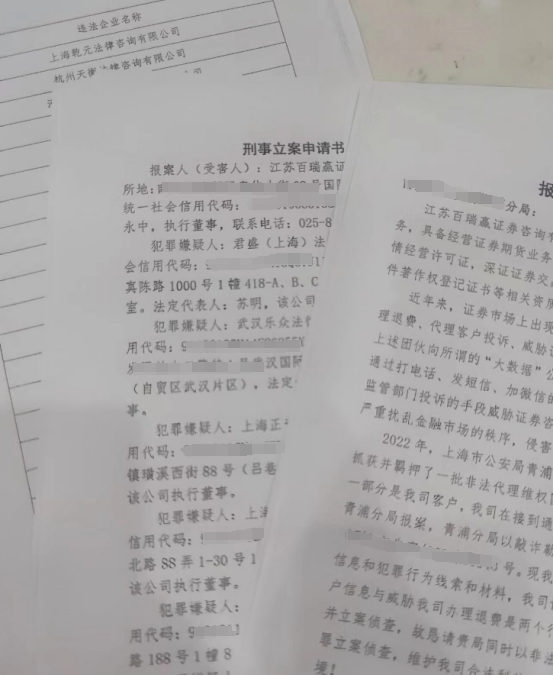 违法企业名称
上海乾元法律咨询有限公司
杭州天衡法律咨询有限公司
刑事立案申请书
报案人（受害人）：江苏百瑞赢证
所地：
号国际
统一社会信用代码：
永中，执行董事，联系电话：025-8
犯罪嫌疑人：君盛（上海）法
会信用代码：
真陈路 1000 号 1 幢 418-A、B、C
室。法定代表人：苏明，该公司
犯罪嫌疑人：武汉乐众法律
用代码：9
武汉国际
（自贸区武汉片区），法定
事。
犯罪嫌疑人：上海正
用代码：
镇璜溪西街 88 号（吕巷
该公司执行董事。
犯罪嫌疑人：上海
信用代码：
北路 88 弄 1-30 号 1
该公司执行董事。
犯罪嫌疑人：
用代码：9
路 188 号 1 幢 8
犯罪嫌疑人
报
分局：
江苏百瑞赢证券咨询有
务，具备经营证券期货业务
情经营许可证，深证证券交
件著作权登记证书等相关资质
近年来，证券市场上出现
理退费、代理客户投诉、威胁证
上述团伙向所谓的“大数据”公
通过打电话、发短信、加微信的
监管部门投诉的手段威胁证券咨
严重扰乱金融市场的秩序，侵害
2022 年，上海市公安局青浦
抓获并羁押了一批非法代理维权
一部分是我司客户，我司在接到通
青浦分局报案，青浦分局以敲诈勒
号。现我
信息和犯罪行为线索和材料，我司
户信息与威胁我司办理退费是两个行
并立案侦查，故恳请贵局同时以非法
罪立案侦查，维护我司合法利
境！